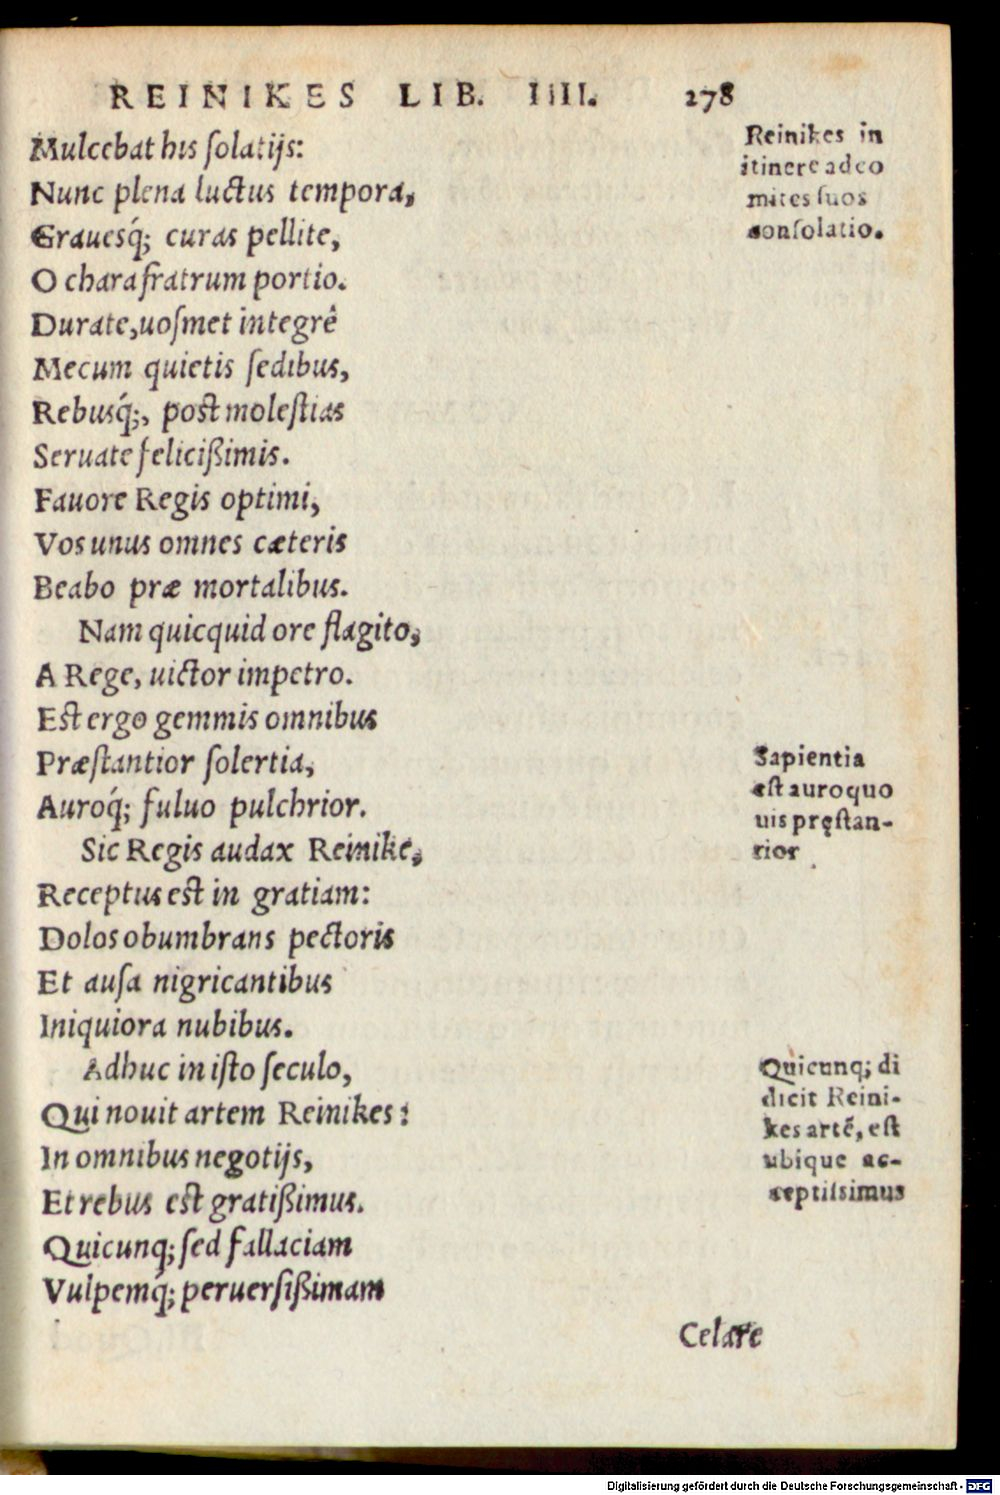 REINIKES LIB. IIII. 278
Mulcebat his ſolatijs:
Nunc plena luctus tempora,
Grauesq́; curas pellite,
O chara fratrum portio.
Durate, uoſmet integrê
Mecum quietis ſedibus,
Rebusq́;, post moleſtias
Seruate feliciſſimis.
Fauore Regis optimi,
Vos unus omnes cæteris
Beabo præ mortalibus.
Nam quicquid ore flagito,
A Rege, uictor impetro.
Est ergo gemmis omnibus
Præſtantior ſolertia,
Auroq́; fuluo pulchrior.
Sic Regis audax Reinike,
Receptus est in gratiam:
Dolos obumbrans pectoris
Et auſa nigricantibus
Iniquiora nubibus.
Adhuc in iſto ſeculo,
Qui nouit artem Reinikes:
In omnibus negotijs,
Et rebus est gratiſſimus.
Quicunq; ſed fallaciam
Vulpemq́; peruerſiſſimam
Celare
Reinikes in
itinere ad co
mites ſuos
conſolatio.
Sapientia
eſt auro quo
uis pręſtan-
tior
Quicunq; di
dicit Reini-
kes artẽ, eſt
ubique ac-
ceptiſsimus
Digitalisierung gefördert durch die Deutsche Forschungsgemeinschaft - DFG